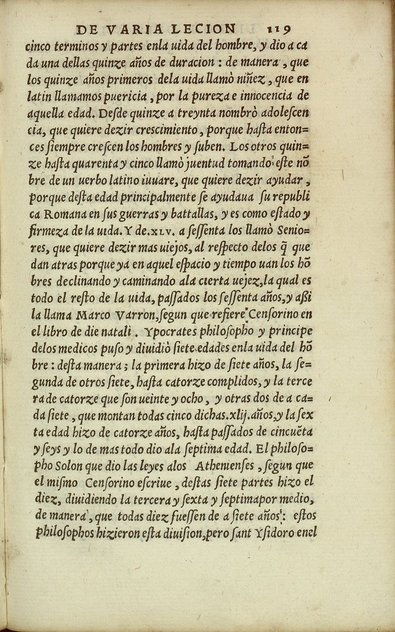 DE VARIA LECION 119
cinco terminos y partes enla uida del hombre, y dio a ca
da una dellas quinze años de duracion : de manera , que
los quinze años primeros dela uida llamò niñez , que en
latin llamamos puericia , por la pureza e innocencia de
aquella edad. Desde quinze a treynta nombrò adolescen
cia, que quiere dezir crescimiento , porque hasta enton-
ces siempre crescen los hombres y suben. Los otros quin-
ze hasta quarenta y cinco llamò juentud tomando este nõ
bre de un uerbo latino iuuare, que quiere dezir ayudar ,
porque desta edad principalmente se ayudaua su republi
ca Romana en sus guerras y battallas, y es como estado y
firmeza de la uida. Y de.xlv. a sessenta los llamò Senio-
res, que quiere dezir mas uiejos, al respecto delos q̃ que
dan atras porque ya en aquel espacio y tiempo uan los hõ
bres declinando y caminando ala cierta uejez, la qual es
todo el resto de la uida, passados los sessenta años, y aßi
la llama Marco Varron, segun que refiere Censorino en
el libro de die natali . Ypocrates philosopho y principe
delos medicos puso y diuidiò siete edades enla uida del hõ
bre : desta manera ; la primera hizo de siete años, la se-
gunda de otros siete, hasta catorze complidos, y la terce
ra de catorze que son ueinte y ocho , y otras dos de a ca-
da siete , que montan todas cinco dichas.xlij.años, y la sex
ta edad hizo de catorze años, hasta passados de cincuẽta
y seys y lo de mas todo dio ala septima edad. El philoso-
pho Solon que dio las leyes alos Athenienses , segun que
el mismo Censorino escriue , destas siete partes hizo el
diez, diuidiendo la tercera y sexta y septima por medio,
de manera , que todas diez fuessen de a siete años : estos
philosophos hizieron esta diuision, pero sant Ysidoro enel